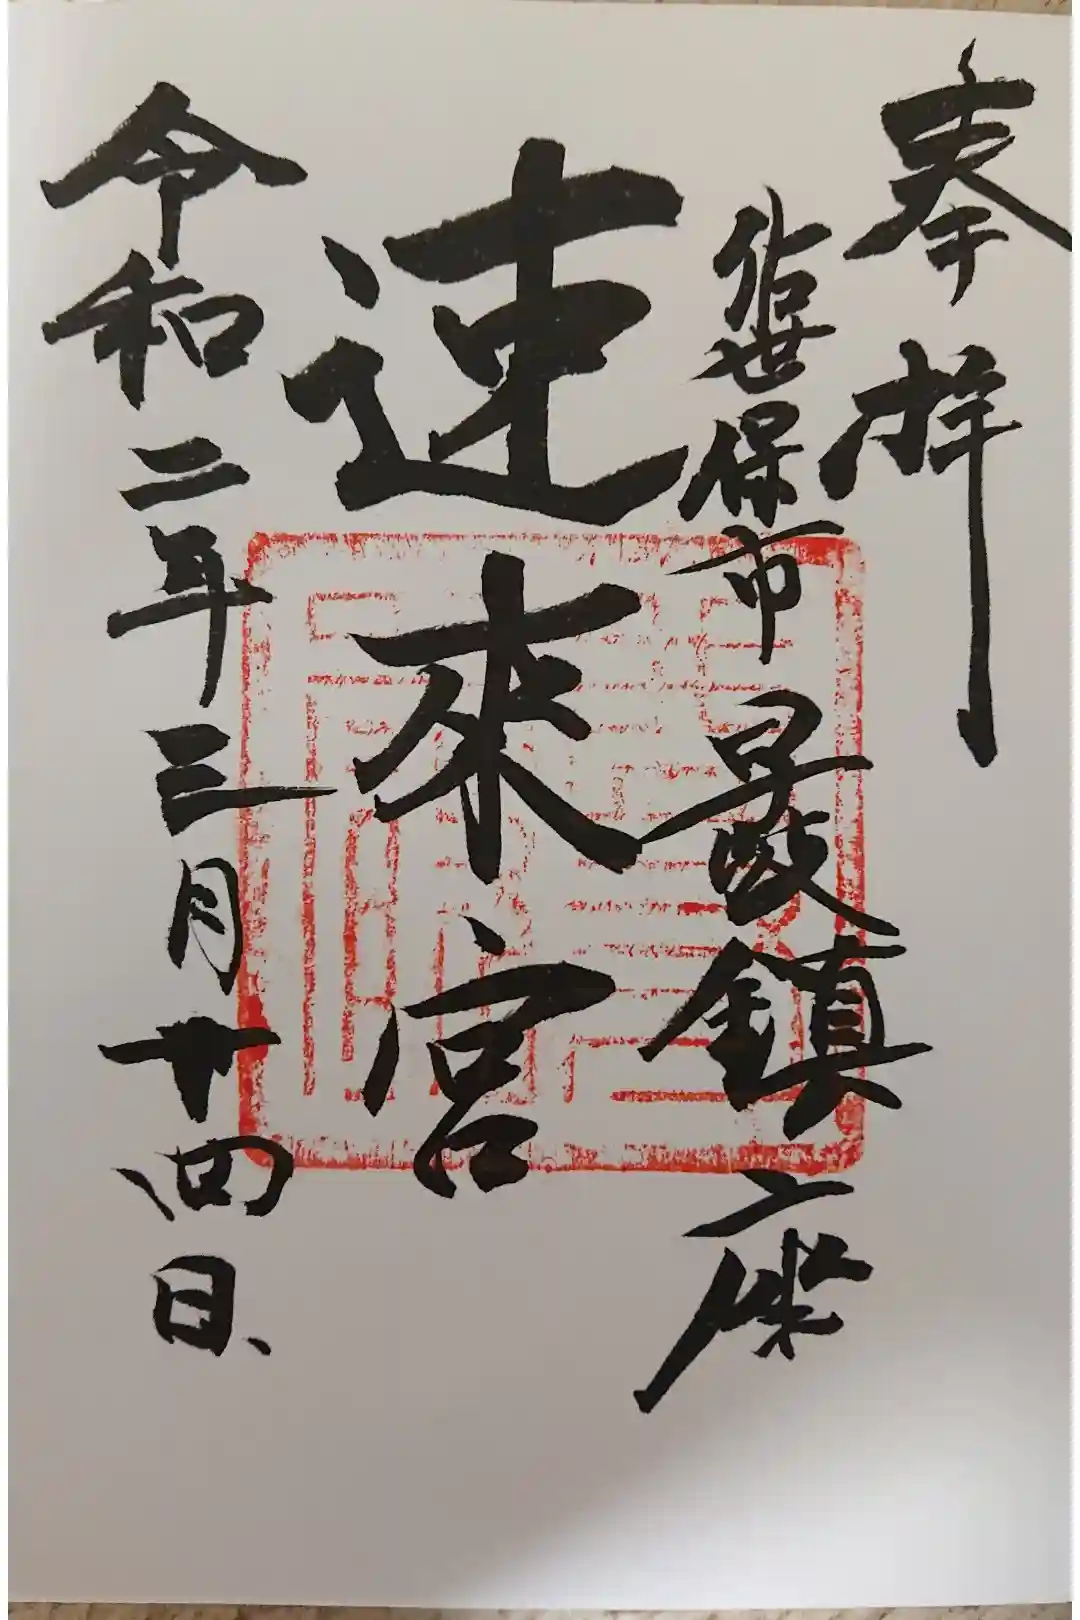 奉拝
佐世保市早岐鎮座
速來宮
令和二年三月十四日